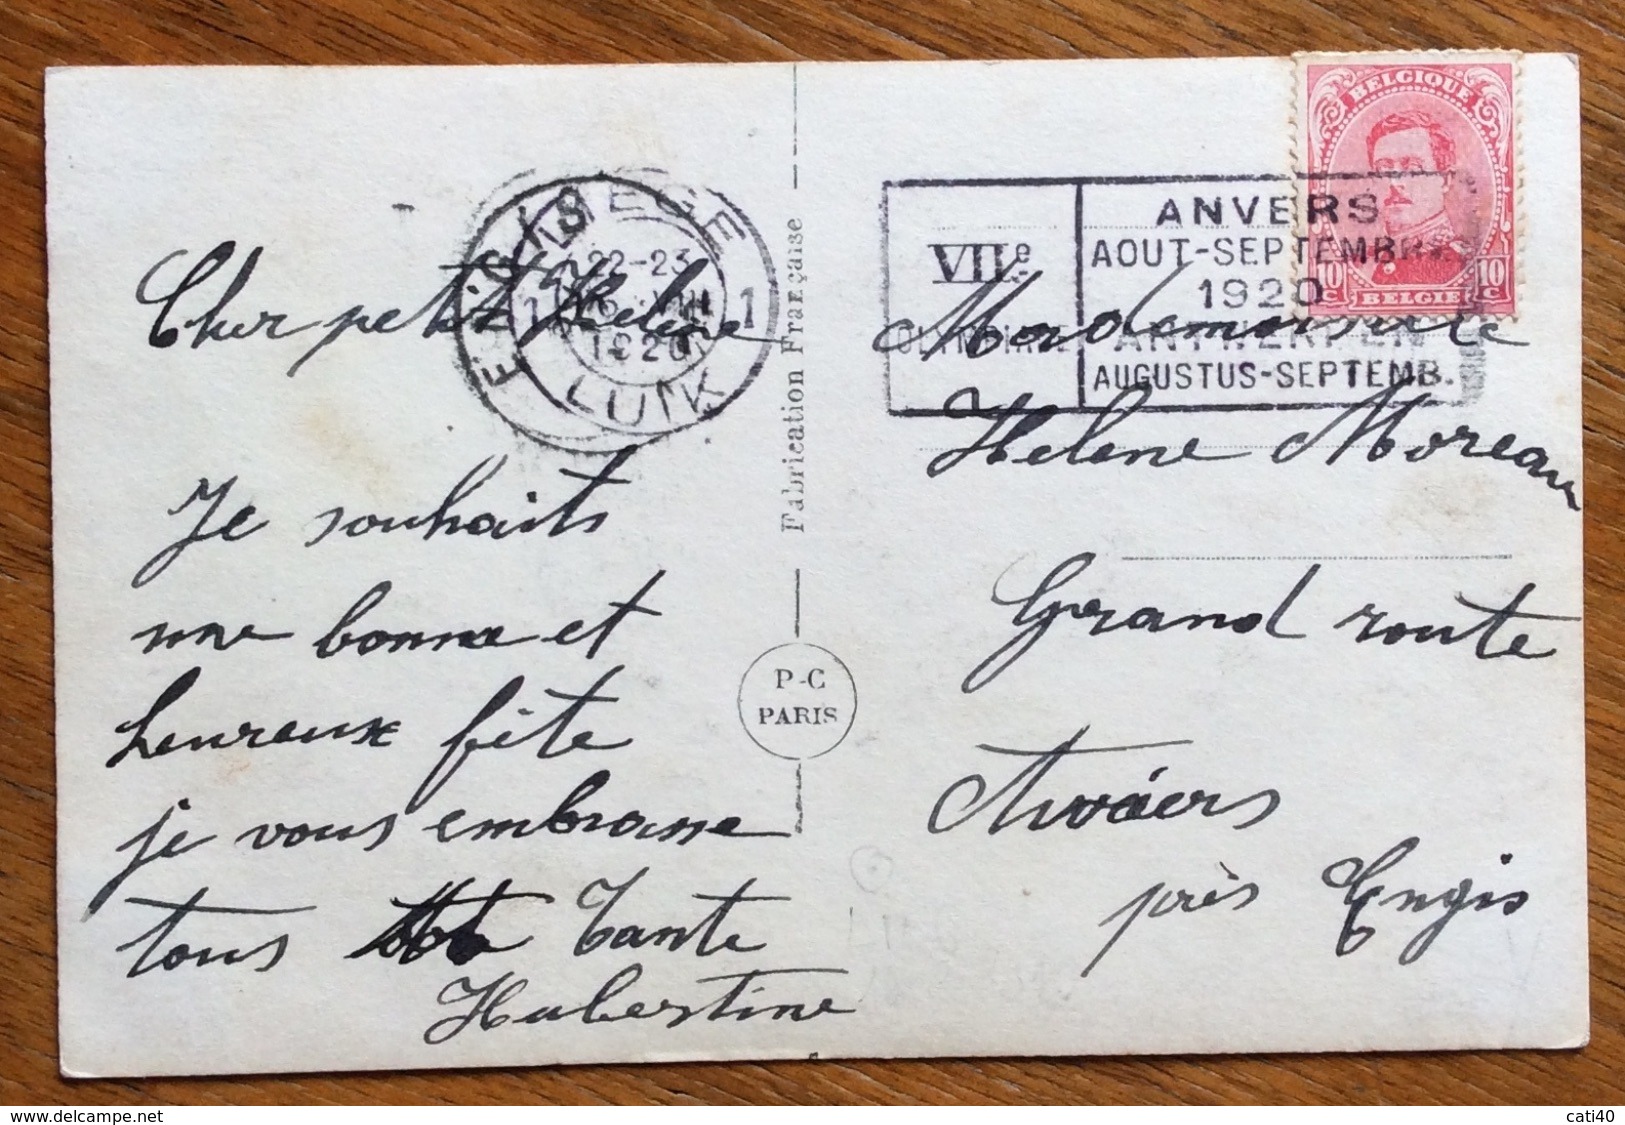 Cher petit Helene
Je souhaits
une bonne et
heureuse fête
je vous embrasse
tous Tante
Hubertine
LIEGE
22-23
1 VIII 1
1920
LUIK
ENGIS
Fabrication Française
P-C
PARIS
VIIe
OLYMPIADE
ANVERS
AOUT-SEPTEMBRE
1920
ANTWERPEN
AUGUSTUS-SEPTEMB.
BELGIQUE
10 c 10 c
BELGIE
Mademoiselle
Helene Moreau
Grand route
près Engis
cati40